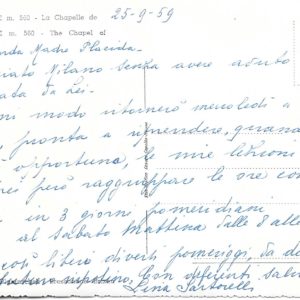 m. 560 - La Chapelle de
25-9-59
m. 560 - The Chapel of
Madre Placida
Milano senza avere avuto
ata da Lei.
modo ritornerò mercoledì a
pronta a riprendere, quan
opportuno, le mie lezioni
però raggruppare le ore
in 3 giorni pomeridiani
al Sabato Mattina dalle 8 alle
così libero diversi pomeriggi, da de
futuro nipotino. Con deferenti saluti
Lina Sartorelli